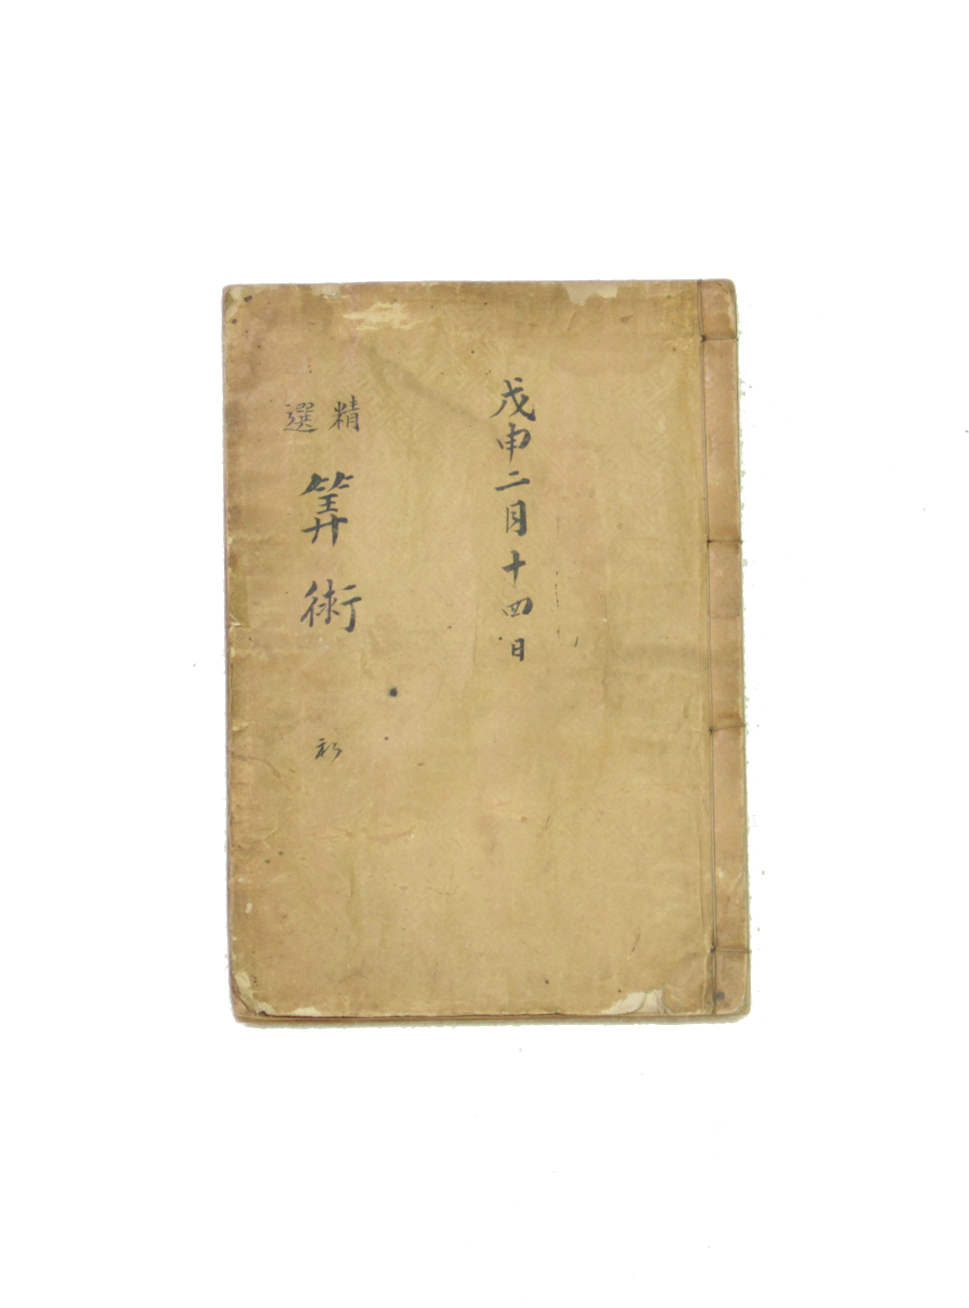 戊申二月十四日
精選
筭術